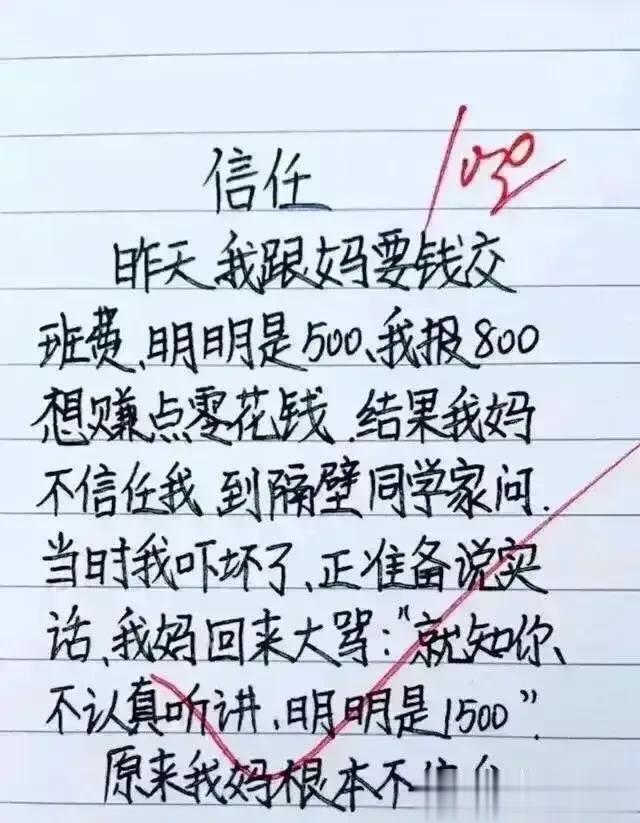 信任
昨天我跟妈要钱交
班费、明明是500、我报800
想赚点零花钱.结果我妈
不信任我 到隔壁同学家问.
当时我吓坏了、正准备说实
话、我妈回来大骂:“就知你、
不认真听讲、明明是1500”.
原来我妈根本不